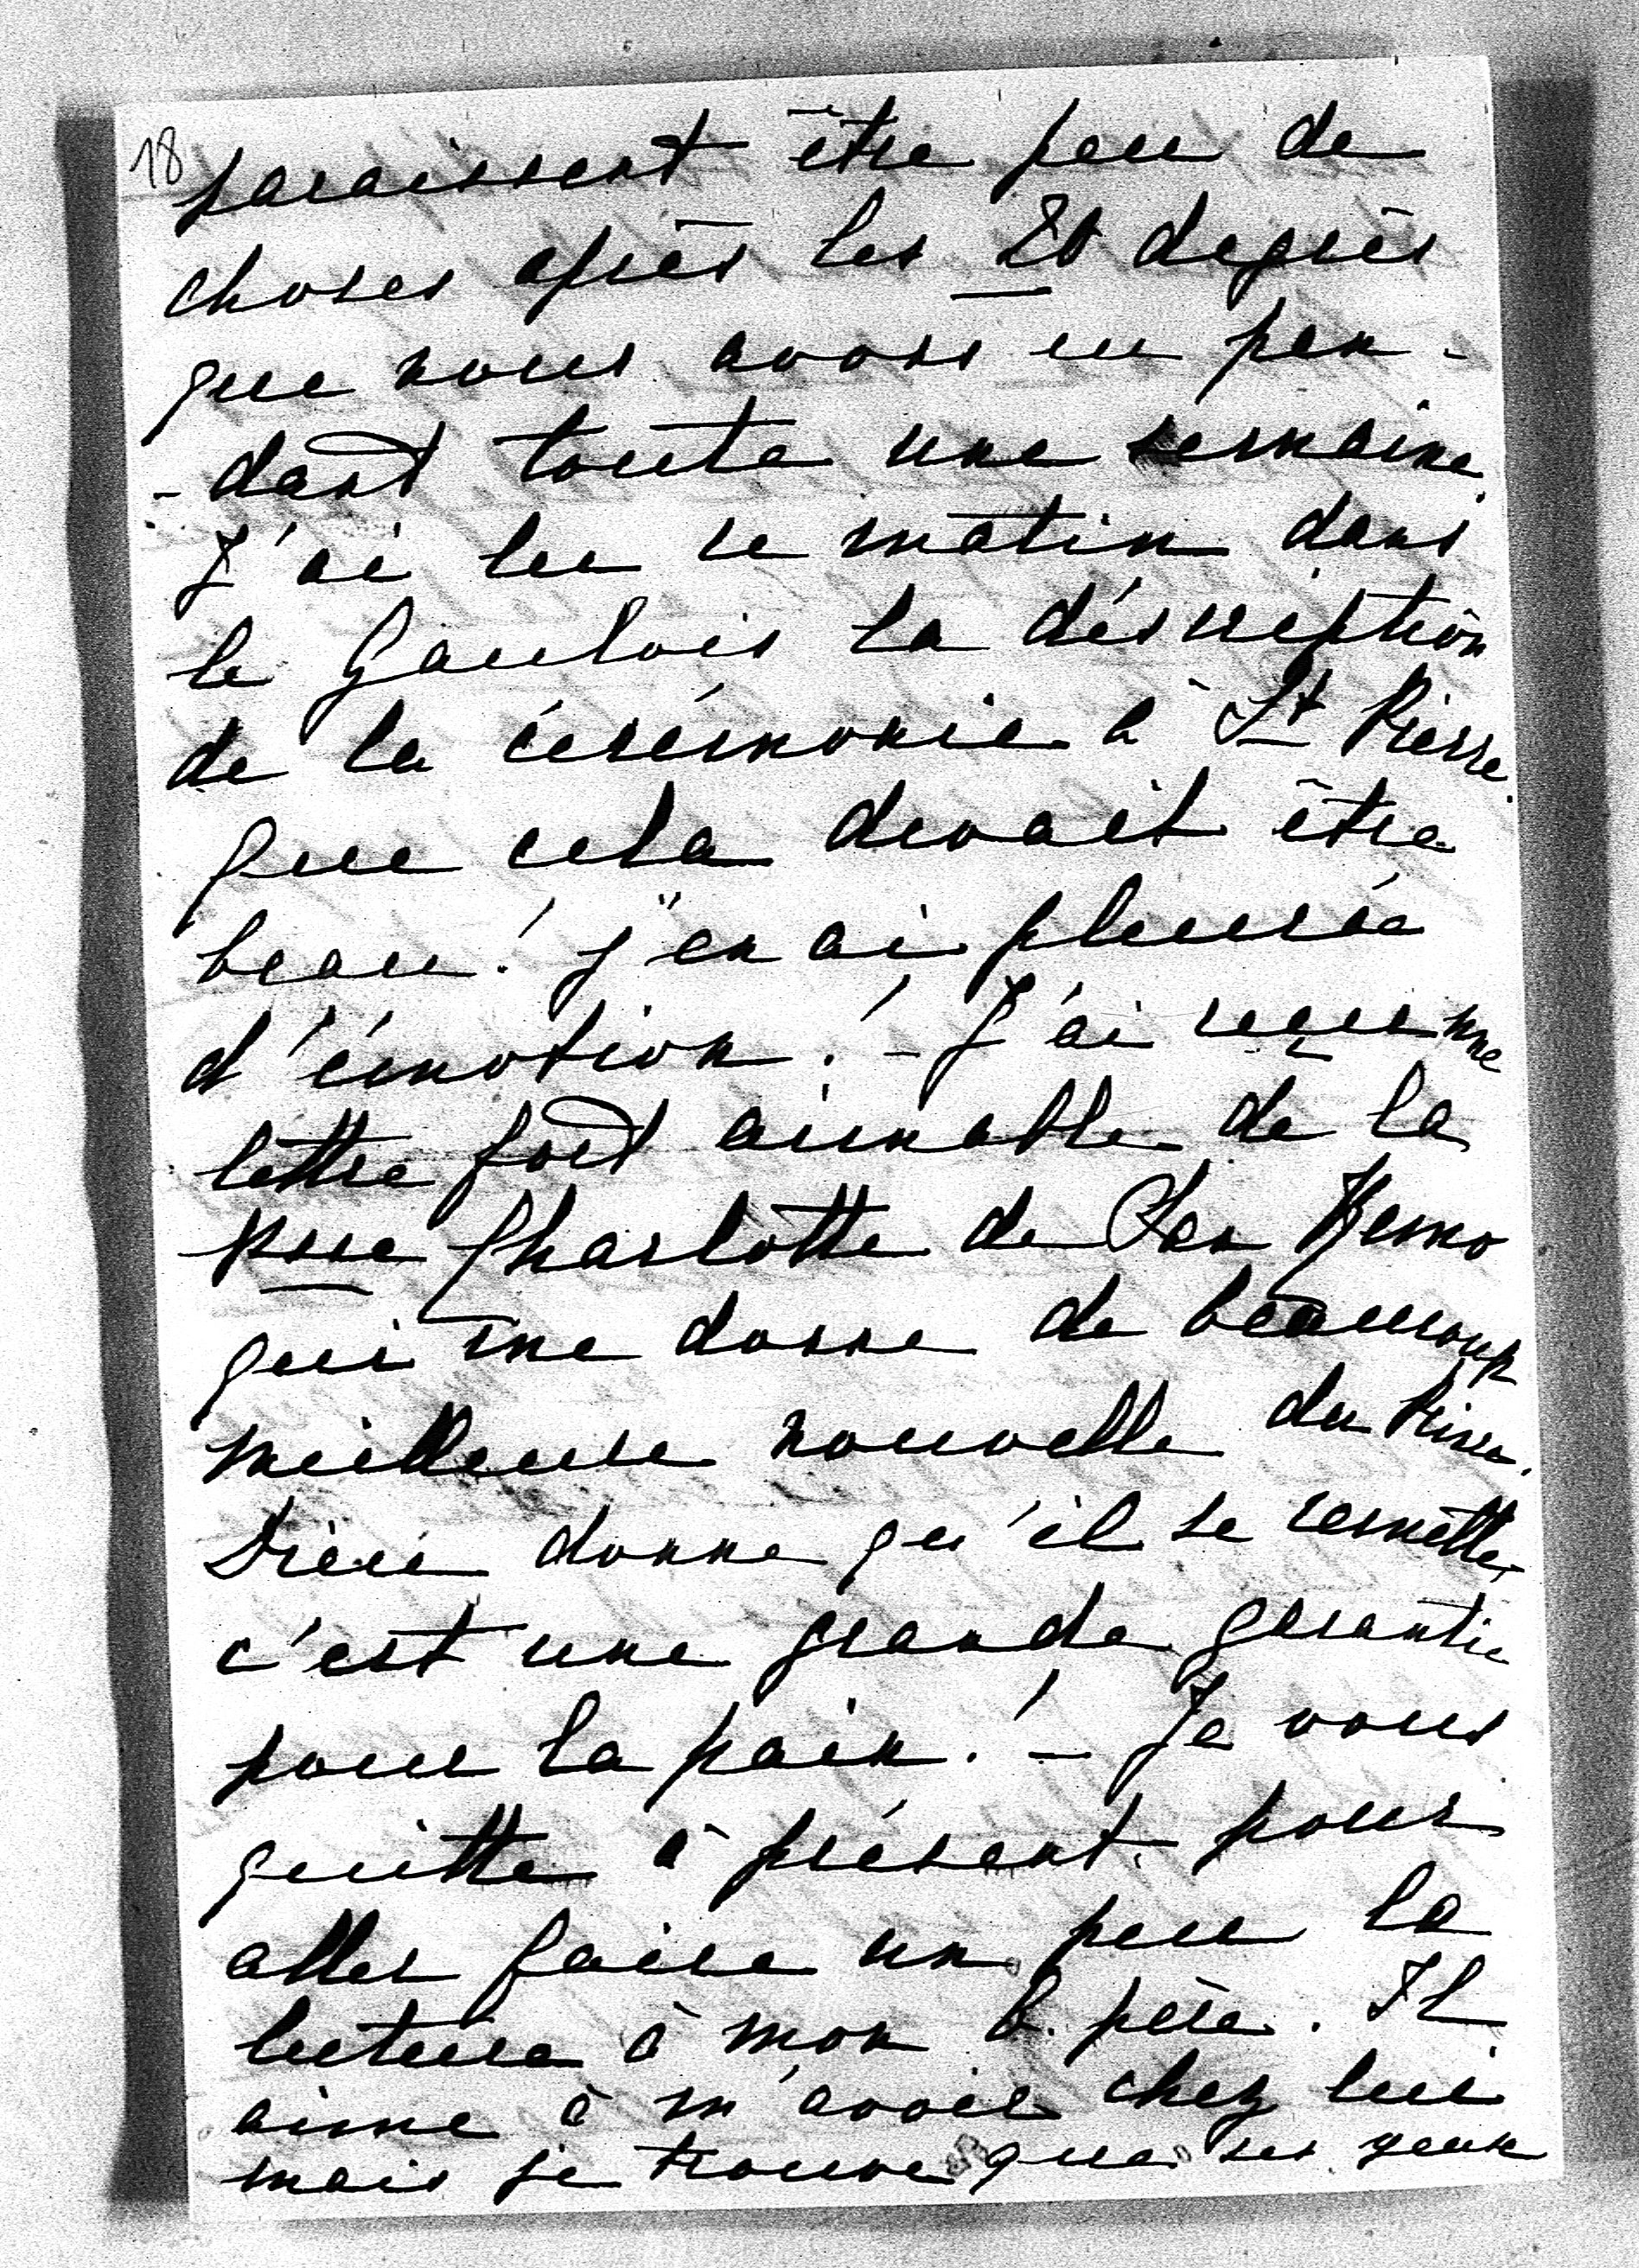 18
paraissent être peu de
choses après les 20 degrès
que nous avons eu pen-
-dant toute une semaine.
J'ai lu ce matin dans
le Gaulois la déscription
de la cérémonie à St Pierre.
Que cela devait être
beau! j'en ai pleurée
d'émotion! - J'ai reçu une
lettre fort aimable de la
Psse Charlotte de San Remo
qui me donne de beaucoup
meilleure nouvelle du Prince.
Dieu donne qu'il se remette,
c'est une grande garantie
pour la paix! - Je vous
quitte à présent pour
aller faire un peu la
lecture à mon b. père. Il
aime à m'avoir chez lui
mais je trouve que ses yeux